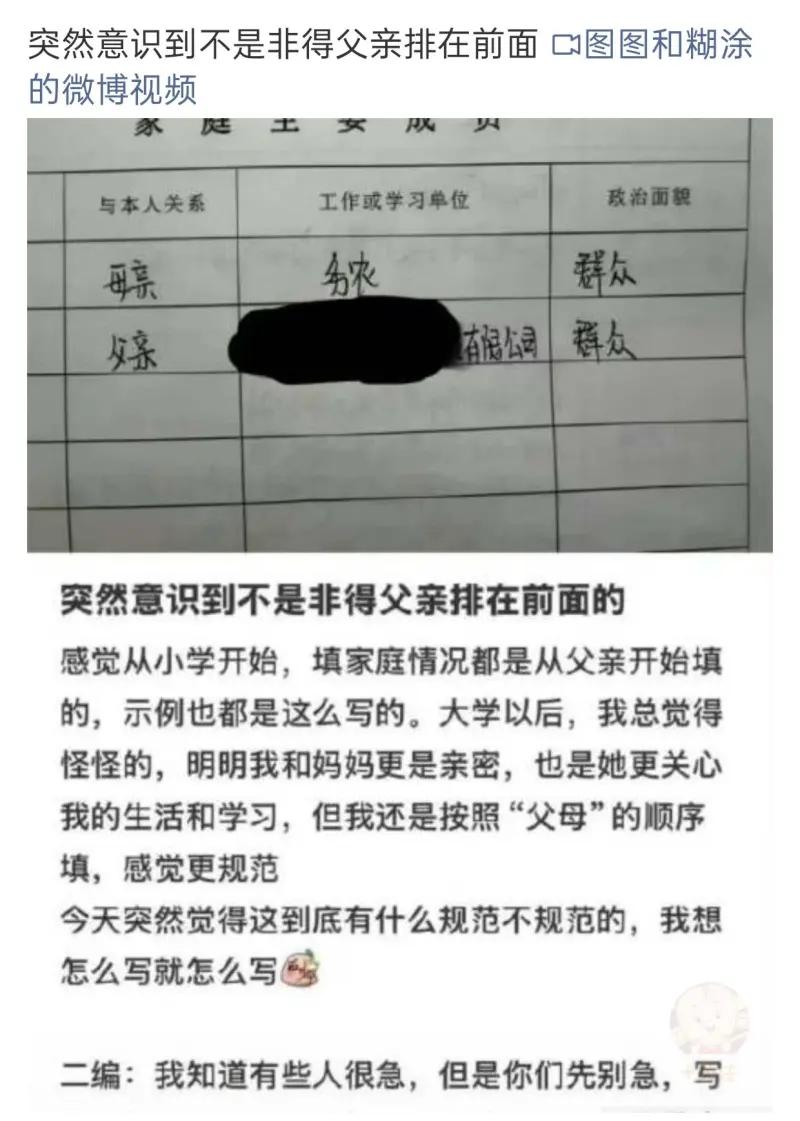 突然意识到不是非得父亲排在前面 图图和糊涂
的微博视频
家庭主要成员
与本人关系 工作或学习单位 政治面貌
母亲 务农 群众
父亲 有限公司 群众
突然意识到不是非得父亲排在前面的
感觉从小学开始，填家庭情况都是从父亲开始填
的，示例也都是这么写的。大学以后，我总觉得
怪怪的，明明我和妈妈更是亲密，也是她更关心
我的生活和学习，但我还是按照“父母”的顺序
填，感觉更规范
今天突然觉得这到底有什么规范不规范的，我想
怎么写就怎么写
二编：我知道有些人很急，但是你们先别急，写